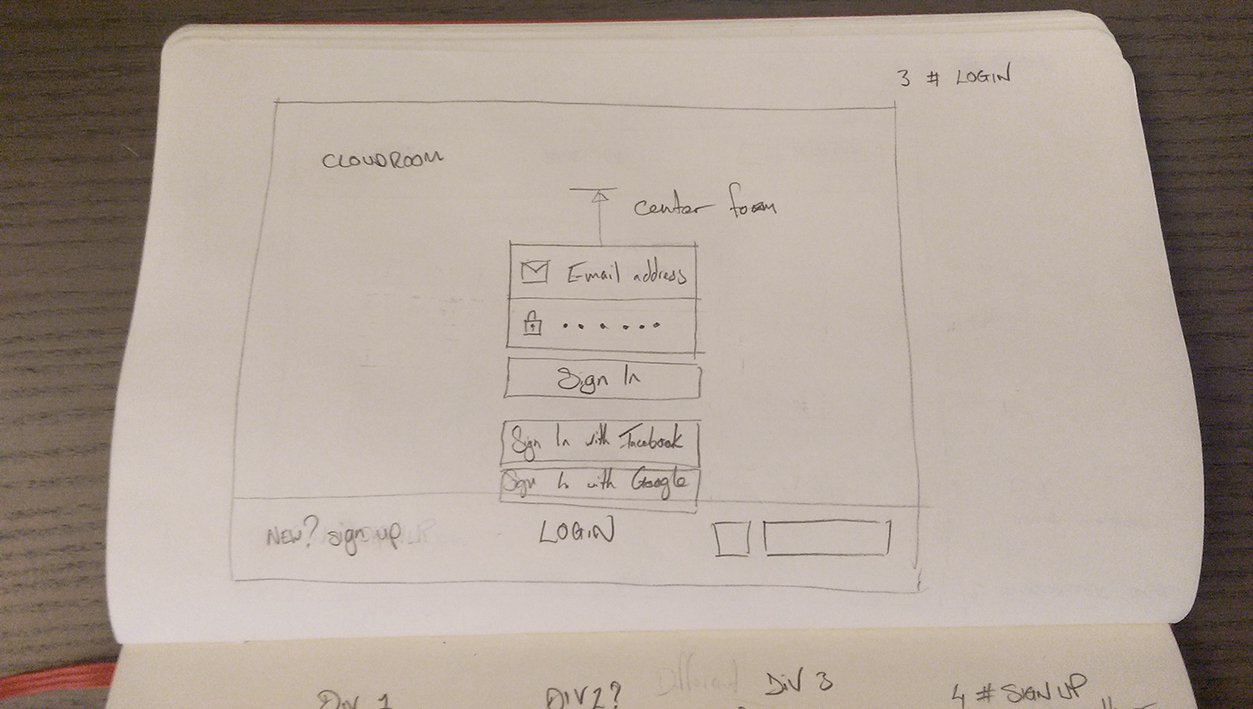 3 # LOGIN
CLOUDROOM
center form
E-mail address
Sign In
Sign In with Facebook
Sign In with Google
NEW? sign up
LOGIN
Different
DIV 1
DIV 2?
DIV 3
4 # SIGN UP